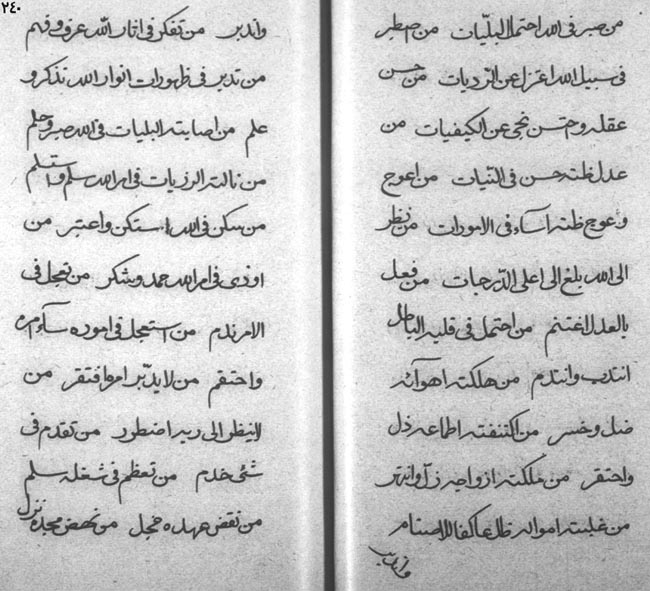 من صبر فی الله احتمل البلیّات من اصطبر
فی سبیل الله اعتزل عن الرّدیات من حسن
عقله و حسن نجی عن الکیفیات من
عدل ظنه حسن فی النّیات من اعوج
و عوج ظنه اساء فی الامورات من نظر
الی الله بلغ الی اعلی الدّرجات من فعل
بالعدل اغتنم من احتمل فی قلبه الباطل
انتدب و انتدم من هلکته اهوآئه
ضل و خسر من اکتنفته اطماعه ذل
و احتقر من ملکته ازواجه زل و
من غلبته امواله ظل عاکفا للاصنام
و اندبر
٢٤٠
و اندبر من تفکر فی اثار الله عرف و فهم
من تدبر فی ظهورات انوار الله تذکر و
علم من اصابته البلیات فی الله صبر و حلم
من نالته الرزیات فی امر الله سلم و استسلم
من سکن فی الله استکن و اعتبر من
اوذی فی امر الله حمد و شکر من تعجل فی
الامر ندم من استعجل فی اموره ساء امره
و احتقم من لا یدّبر امره افتقر من
لا ینظر الی ربه اضطر من تقدم فی
شئی خدم من تعظم فی شغله سلم
من نقض عهده خجل من نهض مجده نزل